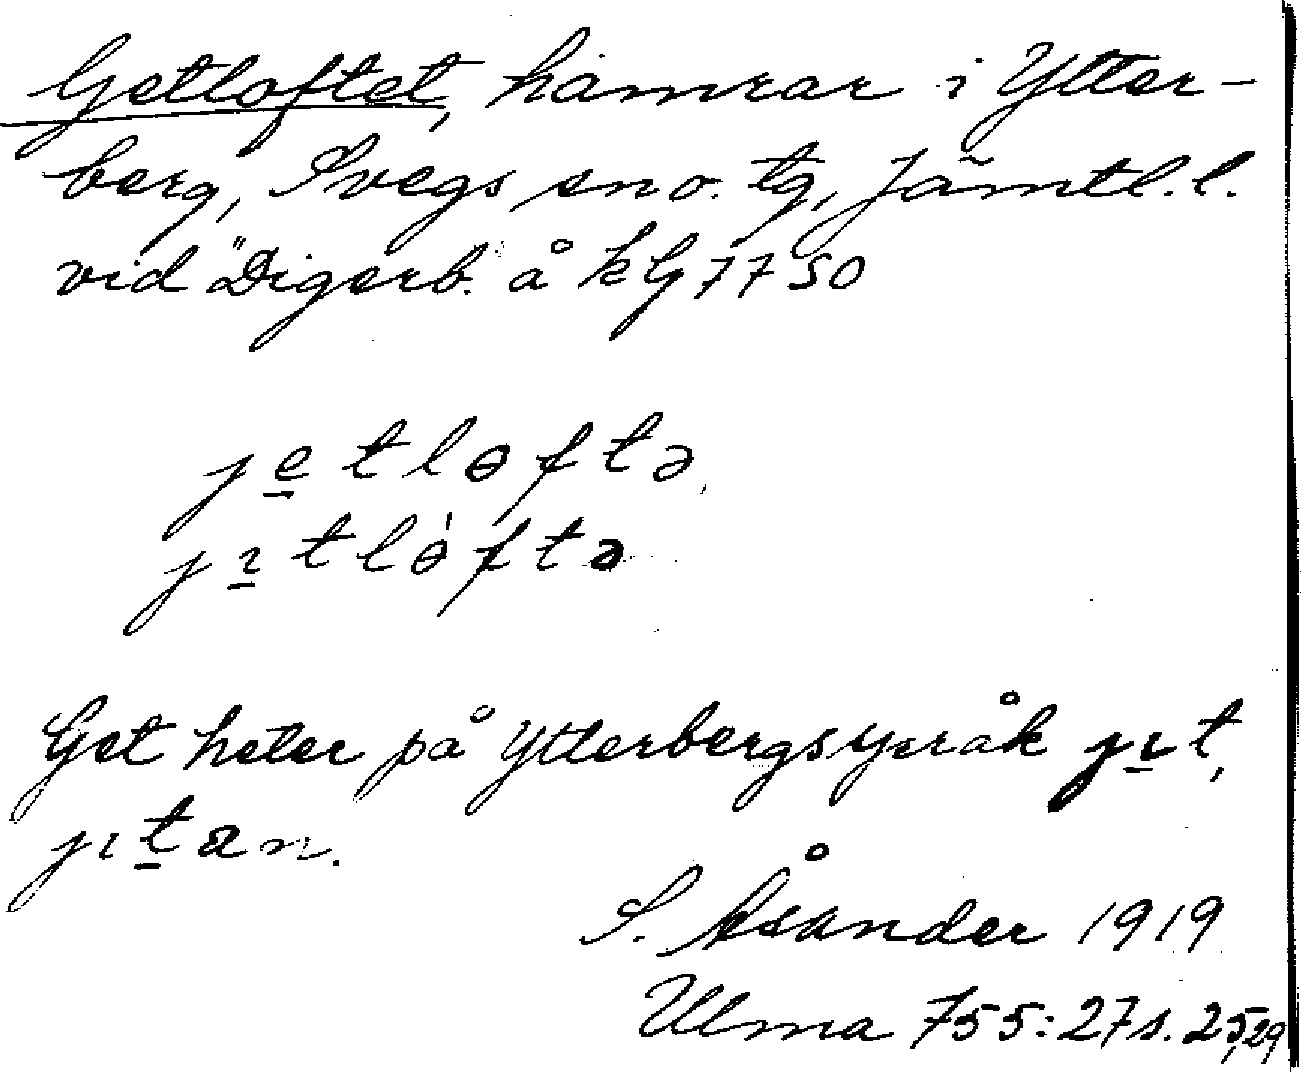 Getloftet, hamrar i Ytter-
berg, Svegs sno. tg, Jämtl. l.
vid "Digerb. å kG 7750
je̲tlɵftə,
jı̲tlɵ̀ftə
Get heter på Ytterbergsspråk jı̲t,
jıt̲an.
S. Åsander 1919
Ulma 755:27 s. 25,29